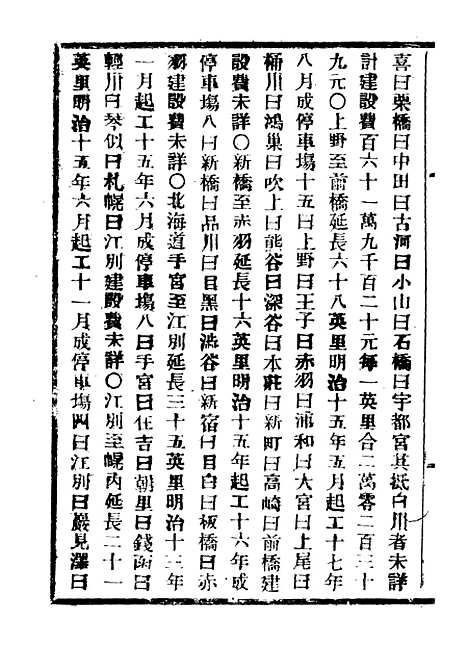 喜曰栗橋曰中田曰古河曰小山曰石橋曰宇都宮其抵白川者未詳
計建設費百六十一萬九千百二十元每一英里合二萬零二百三十
九元〇上野至前橋延長六十八英里明治十五年五月起工十七年
八月成停車場十五曰上野曰王子曰赤羽曰浦和曰大宮曰上尾曰
桶川曰鴻巢曰吹上曰熊谷曰深谷曰本莊曰新町曰高崎曰前橋建
設費未詳〇新橋至赤羽延長十六英里明治十五年起工十六年成
停車場八曰新橋曰品川曰目黑曰澁谷曰新宿曰目白曰板橋曰赤
羽建設費未詳〇北海道手宮至江別延長三十五英里明治十三年
一月起工十五年六月成停車場八曰手宮曰住吉曰朝里曰錢函曰
輕川曰琴似曰札幌曰江別建設費未詳〇江別至幌內延長二十一
英里明治十五年六月起工十一月成停車場四曰江別曰巖見澤曰